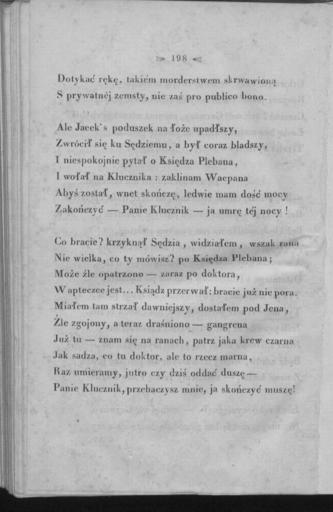 198
Dotykać rękę, takiém morderstwem skrwawioną
S prywatnéj zemsty, nie zaś pro publico bono.
Ale Jacek s poduszek na łoże upadłszy,
Zwrócił się ku Sędziemu, a był coraz bladszy,
I niespokojnie pytał o Księdza Plebana,
I wołał na Klucznika : zaklinam Wacpana
Abyś został, wnet skończę, ledwie mam dość mocy
Zakończyć — Panie Klucznik — ja umrę téj nocy !
Co bracie? krzyknął Sędzia, widziałem, wszak rana
Nie wielka, co ty mówisz? po Księdza Plebana ;
Może źle opatrzono — zaraz po doktora,
W apteczce jest... Ksiądz przerwał: bracie już nie pora.
Miałem tam strzał dawniejszy, dostałem pod Jena,
Źle zgojony, a teraz draśniono — gangrena
Już tu — znam się na ranach, patrz jaka krew czarna
Jak sadza, co tu doktor, ale to rzecz marna,
Raz umieramy, jutro czy dziś oddać duszę —
Panie Klucznik, przebaczysz mnie, ja skończyć muszę!